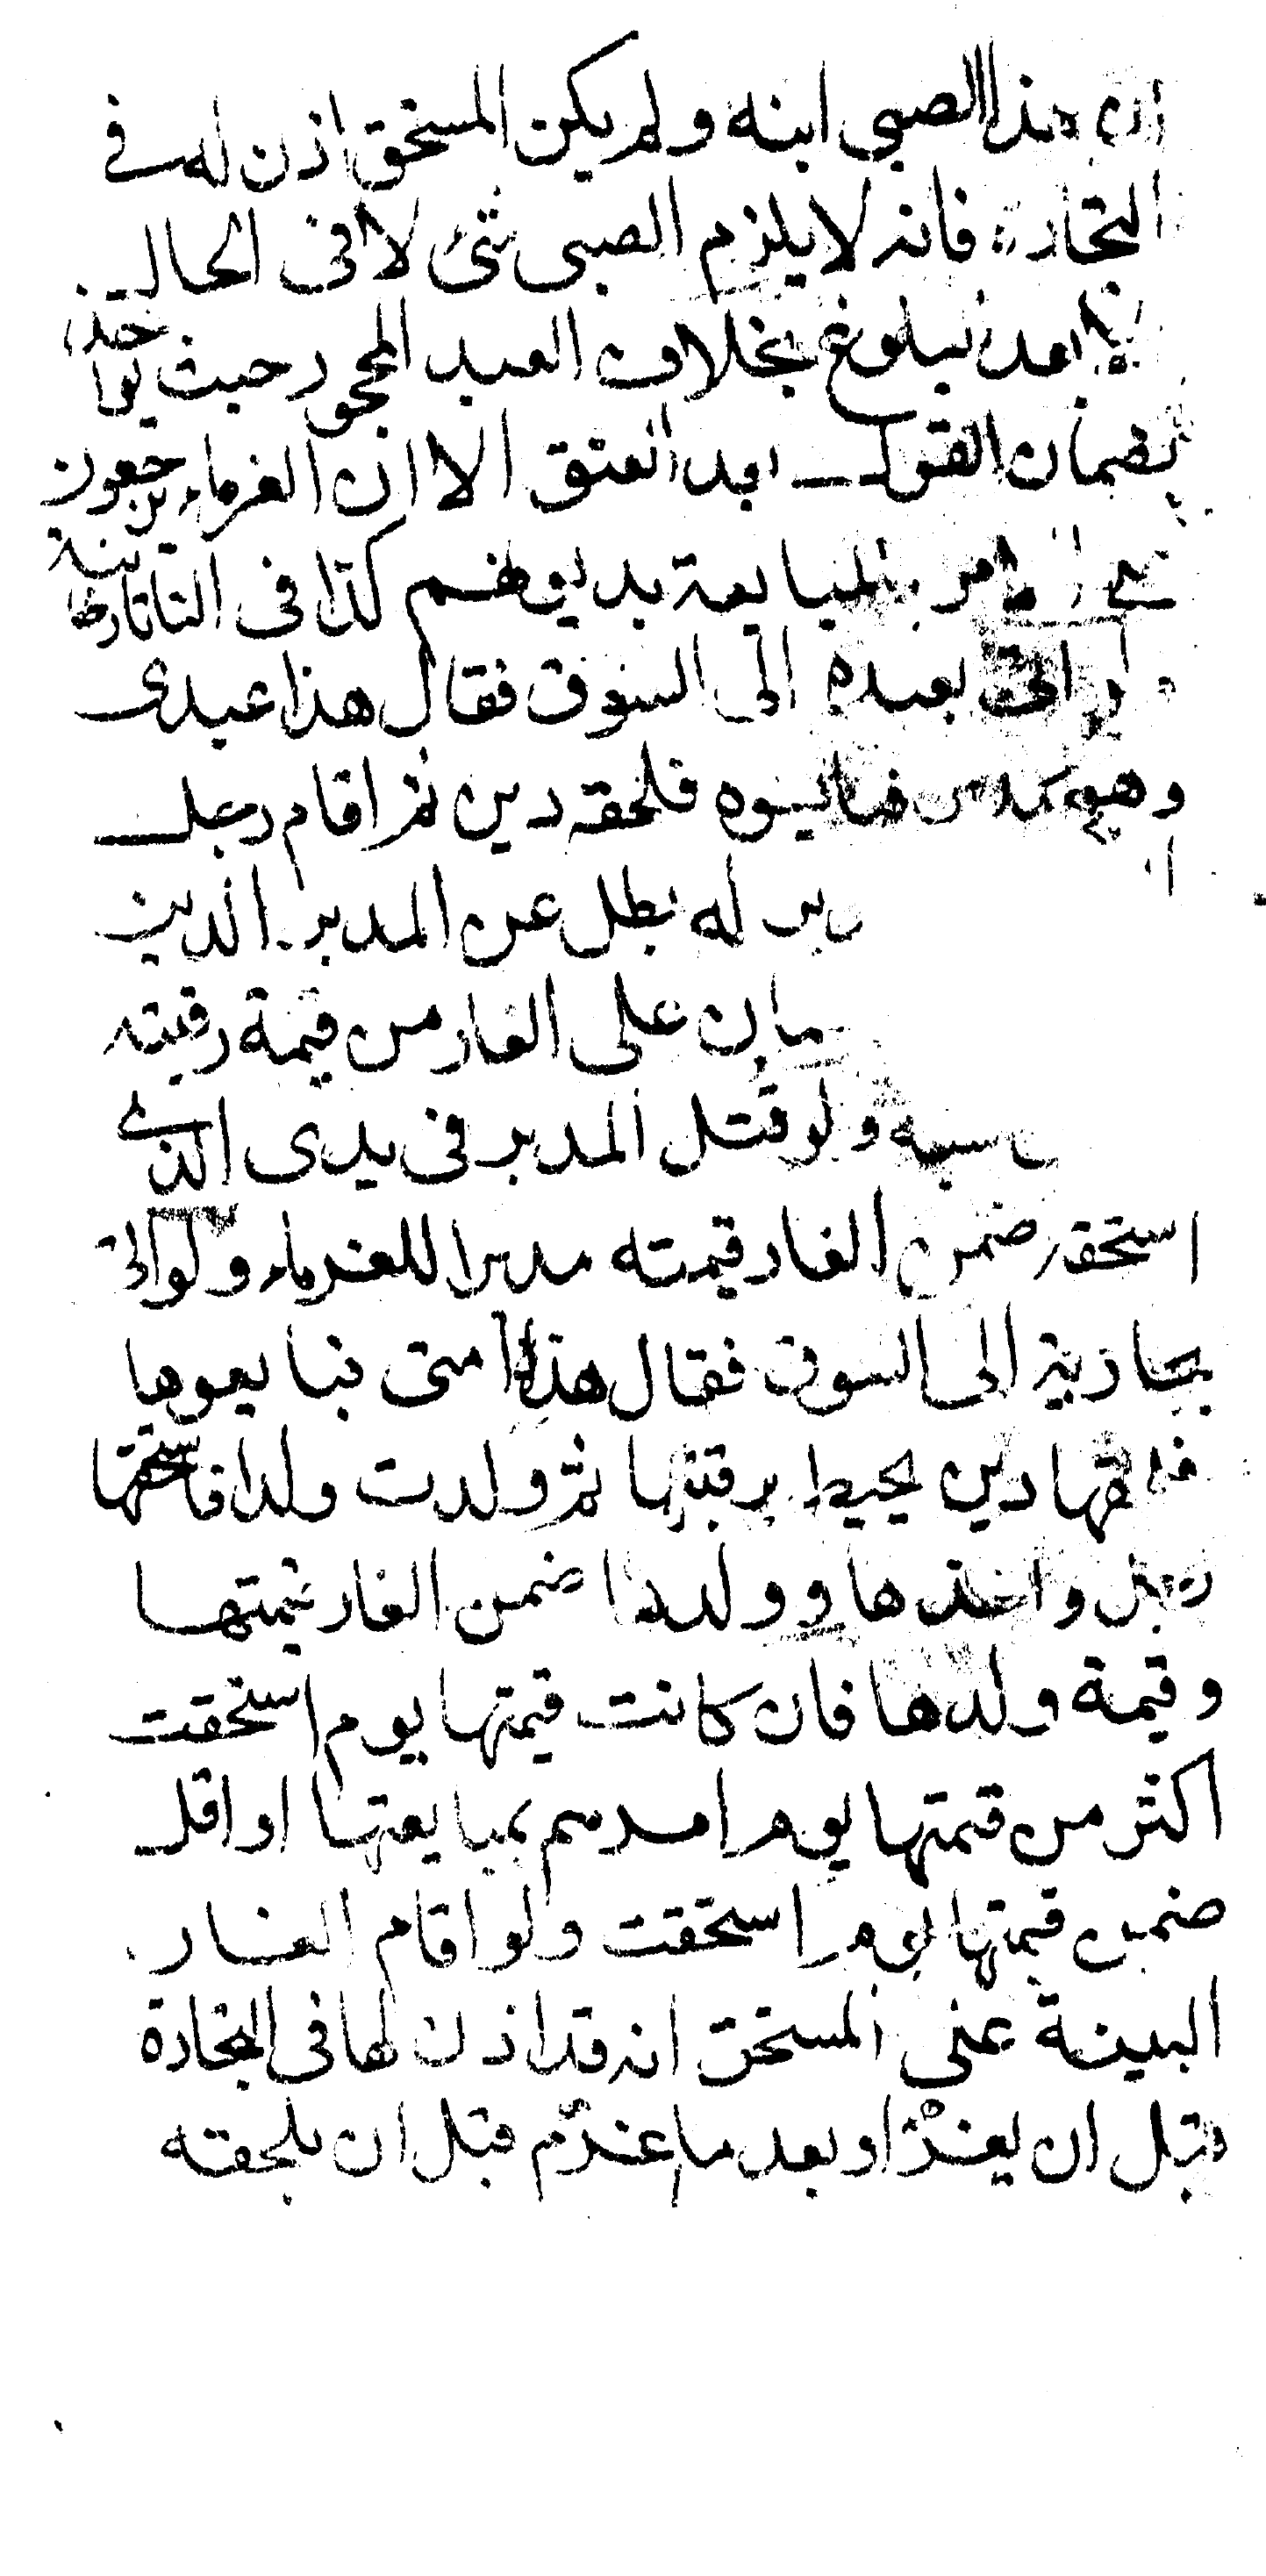 ان هذا الصبى ابنه ولم يكن المستحق اذن له فى
التجارة فانه لا يلزم الصبى شئ لا فى الحال
بعد البلوغ بخلاف العبد المحجور حيث يواخذ
بضمان القول بعد العتق الا ان الغرماء يرجعون
على الامر بالمبايعة بديونهم كذا فى التاتارخانية
ولو اتى بعبده الى السوق فقال هذا عبدى
وهو مدبر فبايعوه فلحقه دين ثم اقام رجل
له بطل عن المدبر الدين
على الغار من قيمة رقبته
ولو قتل المدبر فى يدى الذى
استحقه ضمن الغار قيمته مدبرا للغرماء ولو اتى
بجارية الى السوق فقال هذه امتى فبايعوها
فلحقها دين يحيط برقبتها ثم ولدت ولدا فاستحقها
رجل واخذها وولدها ضمن الغار قيمتها
وقيمة ولدها فان كانت قيمتها يوم استحقت
اكثر من قيمتها يوم امرهم بمبايعتها او اقل
ضمن قيمتها يوم استحقت ولو اقام الغار
البينة على المستحق انه قد اذن لها فى التجارة
قبل ان يغر او بعد ما غرهم قبل ان يلحقه